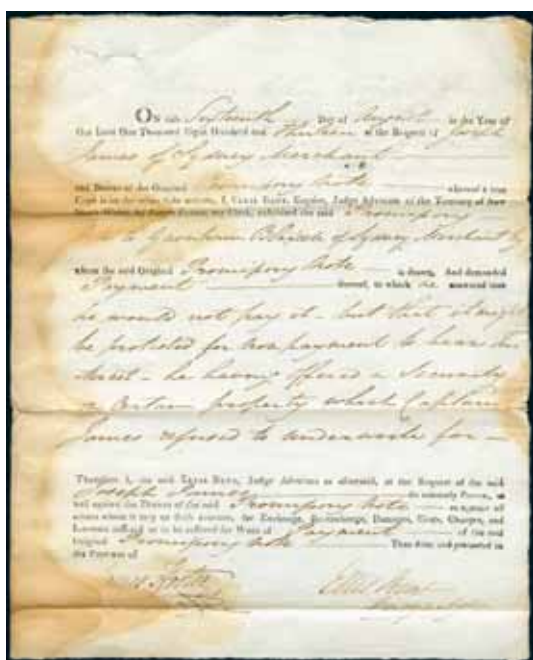 ON this Sixteenth Day of August in the Year of
Our Lord One Thousand Eight Hundred and thirteen at the Request of Joseph
James of Sydney Merchant
and Bearer of the Original Promissory Note whereof a true
Copy is on the other side written, I, ELLIS BENT, Esquire, Judge Advocate of the Territory of New
South Wales, by my Clerk, exhibited the said Promissory
Note to Garnham Blaxcell of Sydney Merchant by
whom the said Original Promissory Note is drawn, And demanded
Payment thereof, to which he answered that
he would not pay it - but that it might
be protested for non payment to bear Interest - he having offered a Security
on Certain property which Captain
James refused to underwrite for -
Therefore I, the said ELLIS BENT, Judge Advocate as aforesaid, at the Request of the said
Joseph James do solemnly Protest, as
well against the Drawer of the said Promissory Note as against all
others whom it may or doth concern, for Exchange, Re-exchange, Damages, Costs, Charges, and
Interests suffered or to be suffered for Want of Payment of the said
Original Promissory Note Thus done and protested in
the Presence of
Ellis Bent